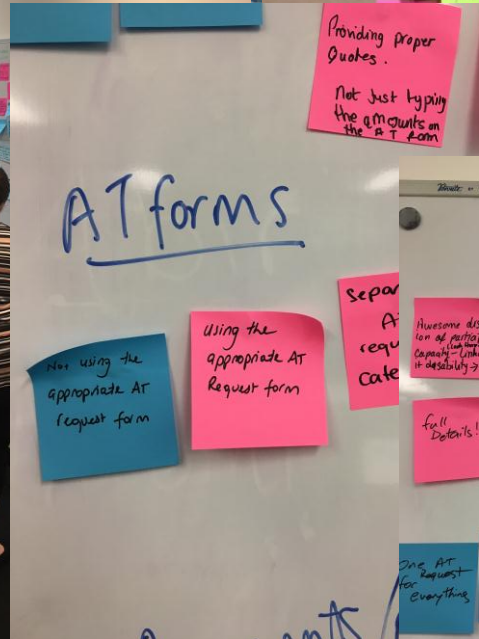 Providing proper
Quotes.
Not Just typing
the amounts on
the AT form
AT forms
Not using the
appropriate AT
request form
using the
appropriate AT
Request form
Separ
A
requ
Cate
Awesome dis
ion of partia
Capacity - link
it disability →
full
Details!
One AT
Request
for
everything